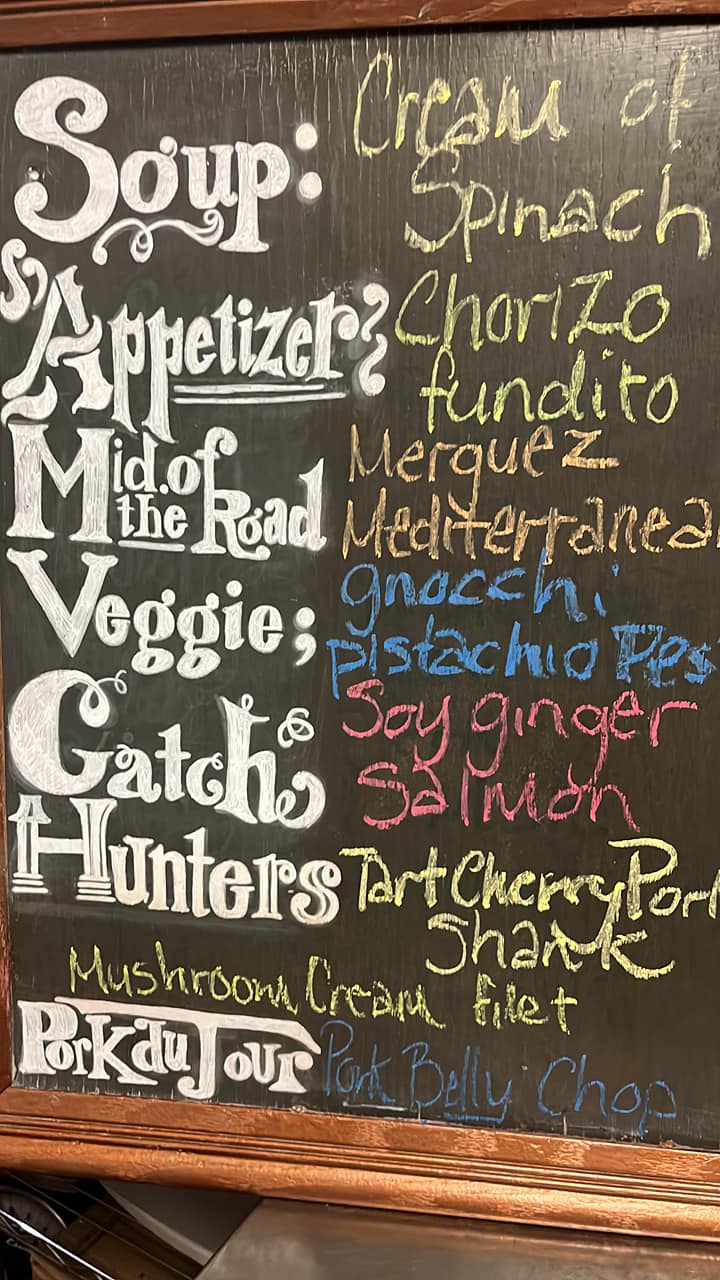 Soup: Cream of
Spinach
Appetizer: Chorizo
fundito
Mid. of Merquez
the Road Mediterranea
Veggie; gnocchi
pistachio Pes
Catch Soy ginger
Salmon
Hunters Tart Cherry Pork
Shank
Mushroom Cream filet
Pork du Jour Pork Belly Chop